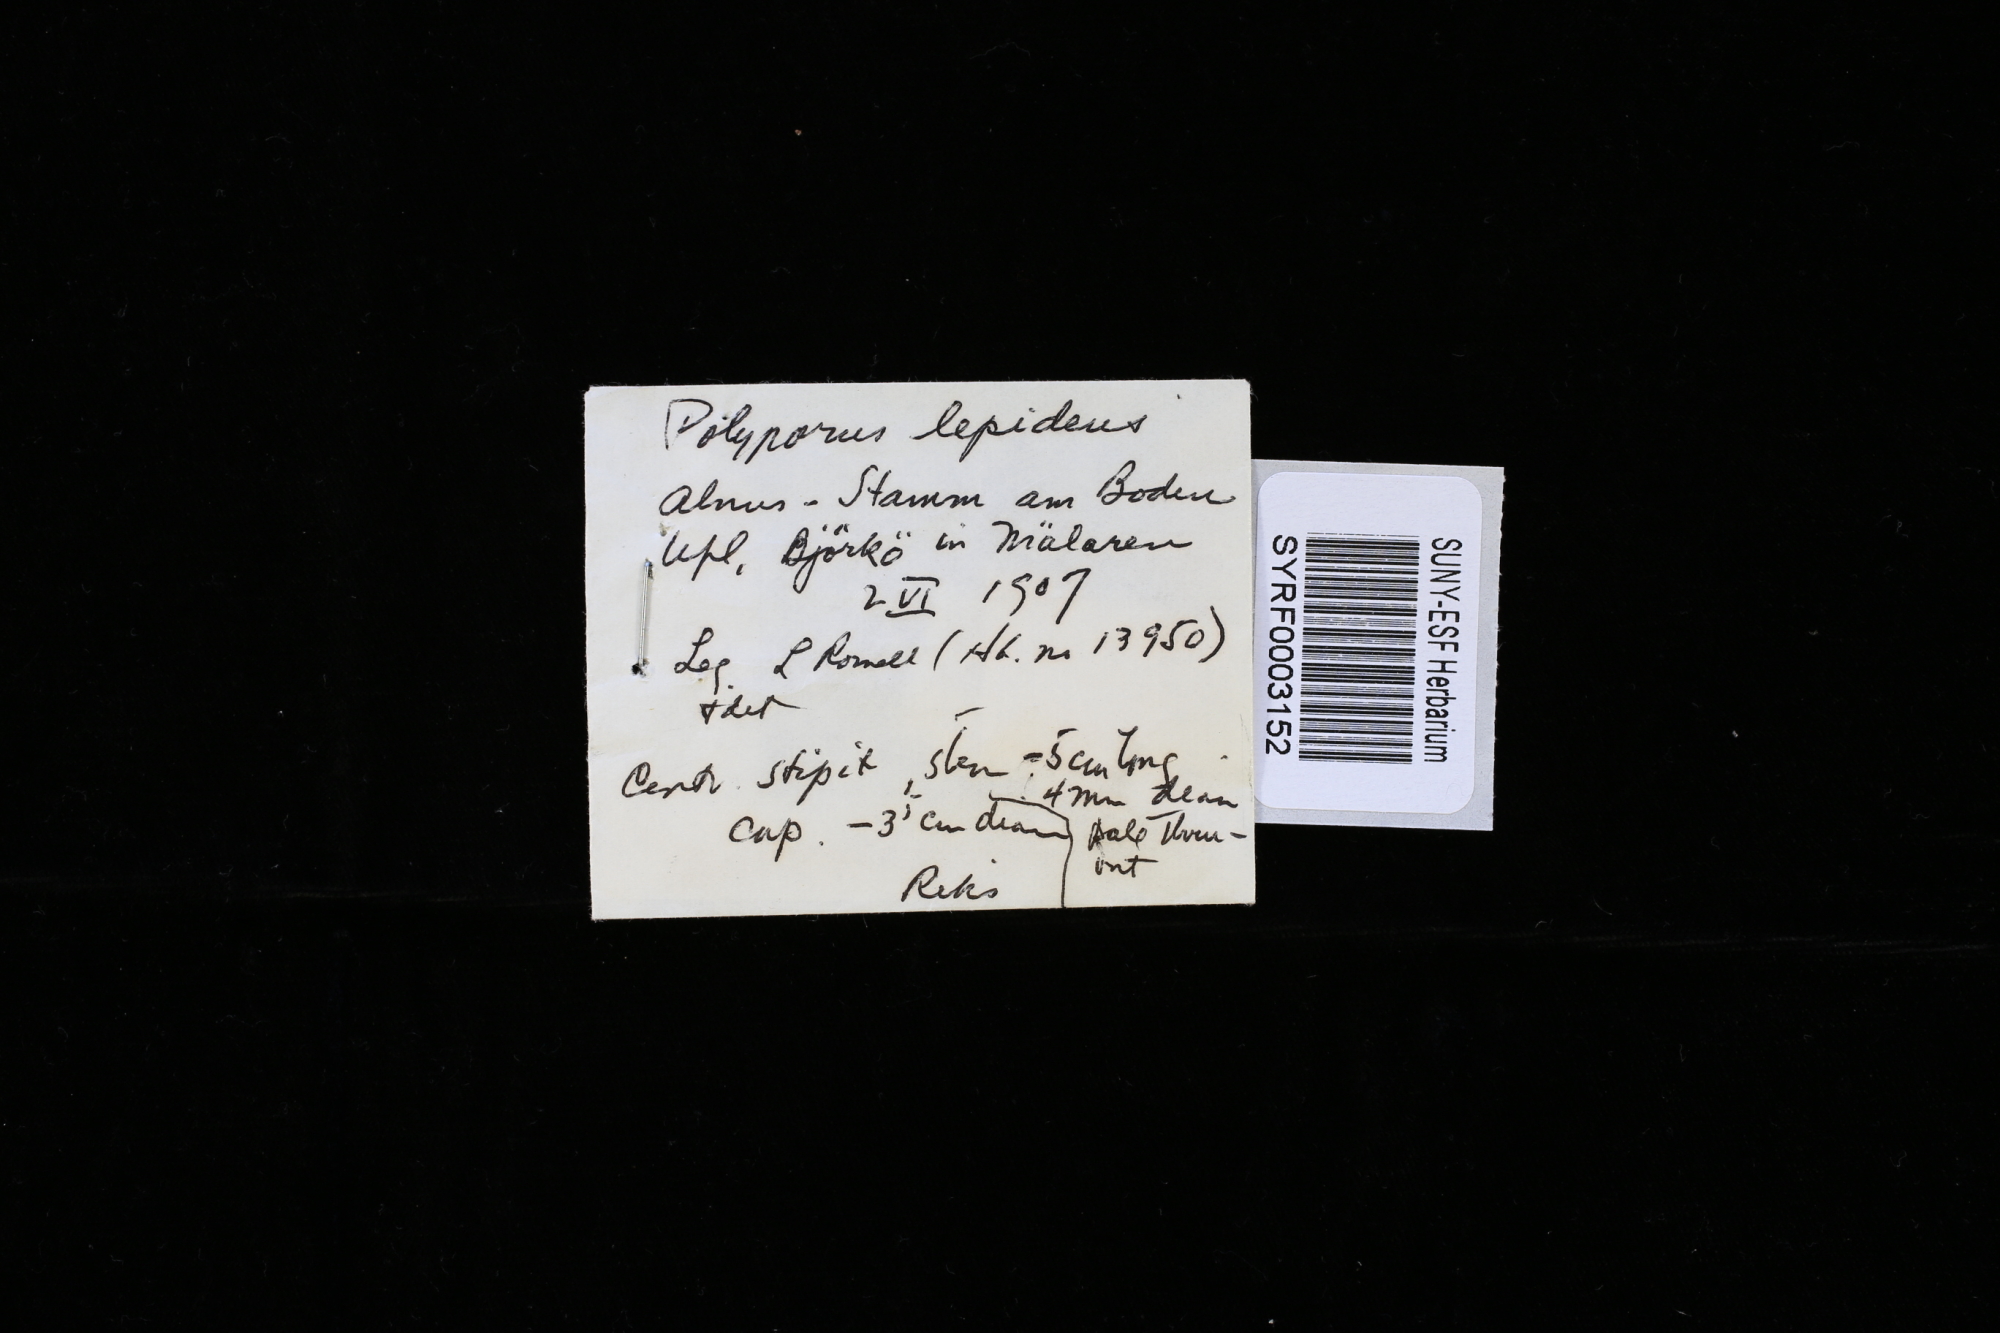 Polyporus lepideus
Alnus - Stamm am Boden
Upl, Björkö in Mälaren
2 VI 1907
Leg. L Romell (Hb. no 13950)
+ det
Centr. stipit, stem -5 cm long
4 mm diam
cap. -3,5 cm diam
pale
Riks
SUNY-ESF Herbarium
SYRF0003152